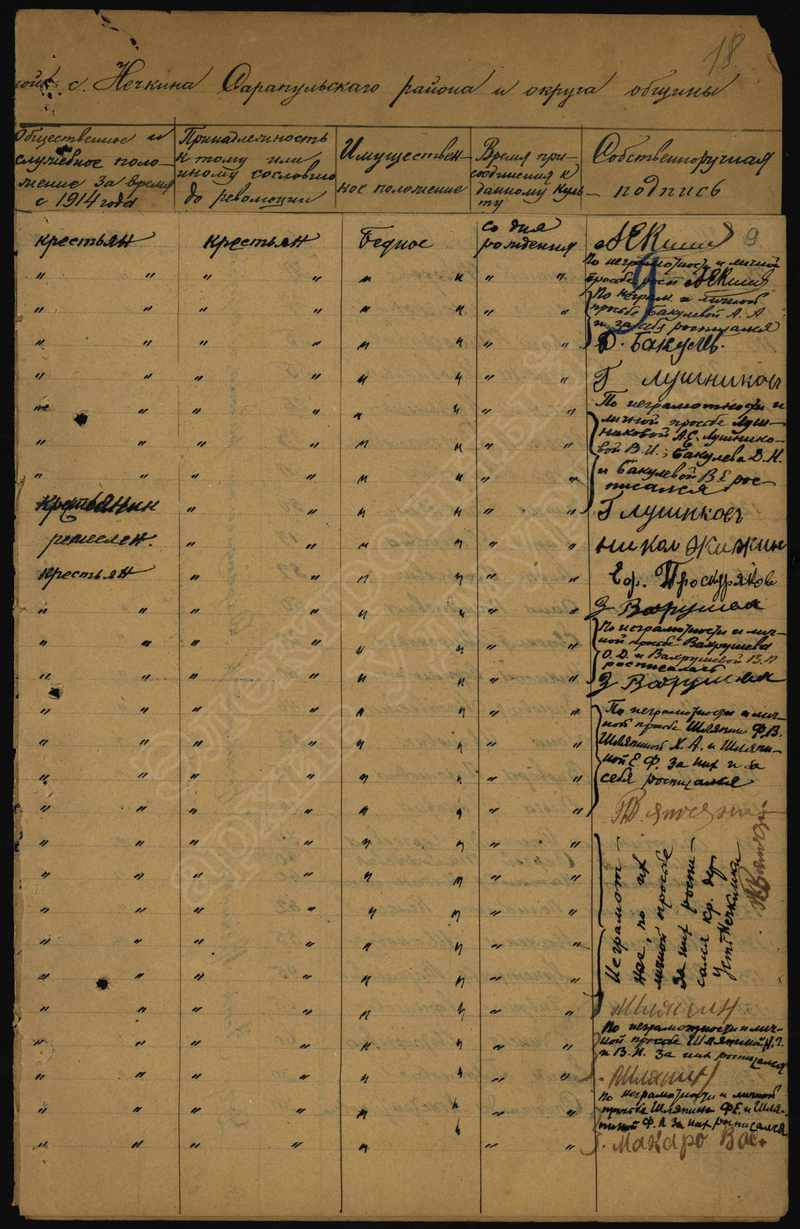 18
с. Нечкина Сарапульскаго района и округа общины
Общественное и
служебное поло-
жение за время
с 1914 года
Принадлежность
к тому или
иному сословию
до революции
Имуществен-
ное положение
Время при-
соединения к
данному куль-
ту
Собственноручная
подпись
крестьян крестьян бедное
со дня
рождения
9
По неграмотности и личной
По неграм и личной
просьбе Бакулевой А. А
и за себя росписался
Д. Бакулев.
Г Лушников
По неграмотности и
личной просьбе Луш-
никовой А.С. Лушнико-
вой В.И.; Бакулева Д.Н.
и Бакулевой В Е рос-
писался
крестьянин
ремеслен. Никол Жижин
крестьян Ефр. Проскуряков
По неграмотности и лич-
ной просьбе Вахрушева
О.Д. и Вахрушевой В.П
росписалась
По неграмотности и лич-
ной просьбе Шляпин Ф.В.
Шляпиной Х.А. и Шляпи-
ной Е.Ф. за них и за
себя росписалья
Неграмот-
ное, по их
личной просьбе
за них роспи-
сался кр. дер
Усть Нечкина
Шляпин
По неграмотности и лич-
ной просьбе Шляпиной
и В.И. за них росписался
Шляпин
По неграмотности и личной
просьбе Шляпина Ф.Е. и Шля-
пиной Ф. за них росписался
Макаро Вас.